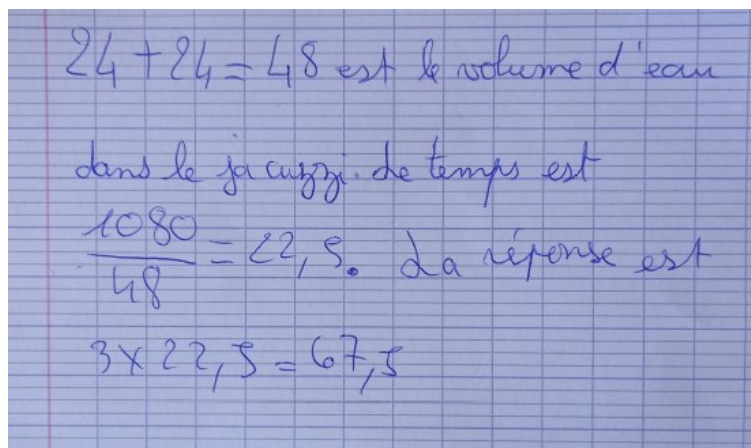 24 + 24 = 48 est le volume d'eau
dans le jacuzzi. Le temps est
1080/48 = 22,5. La réponse est
3 x 22,5 = 67,5